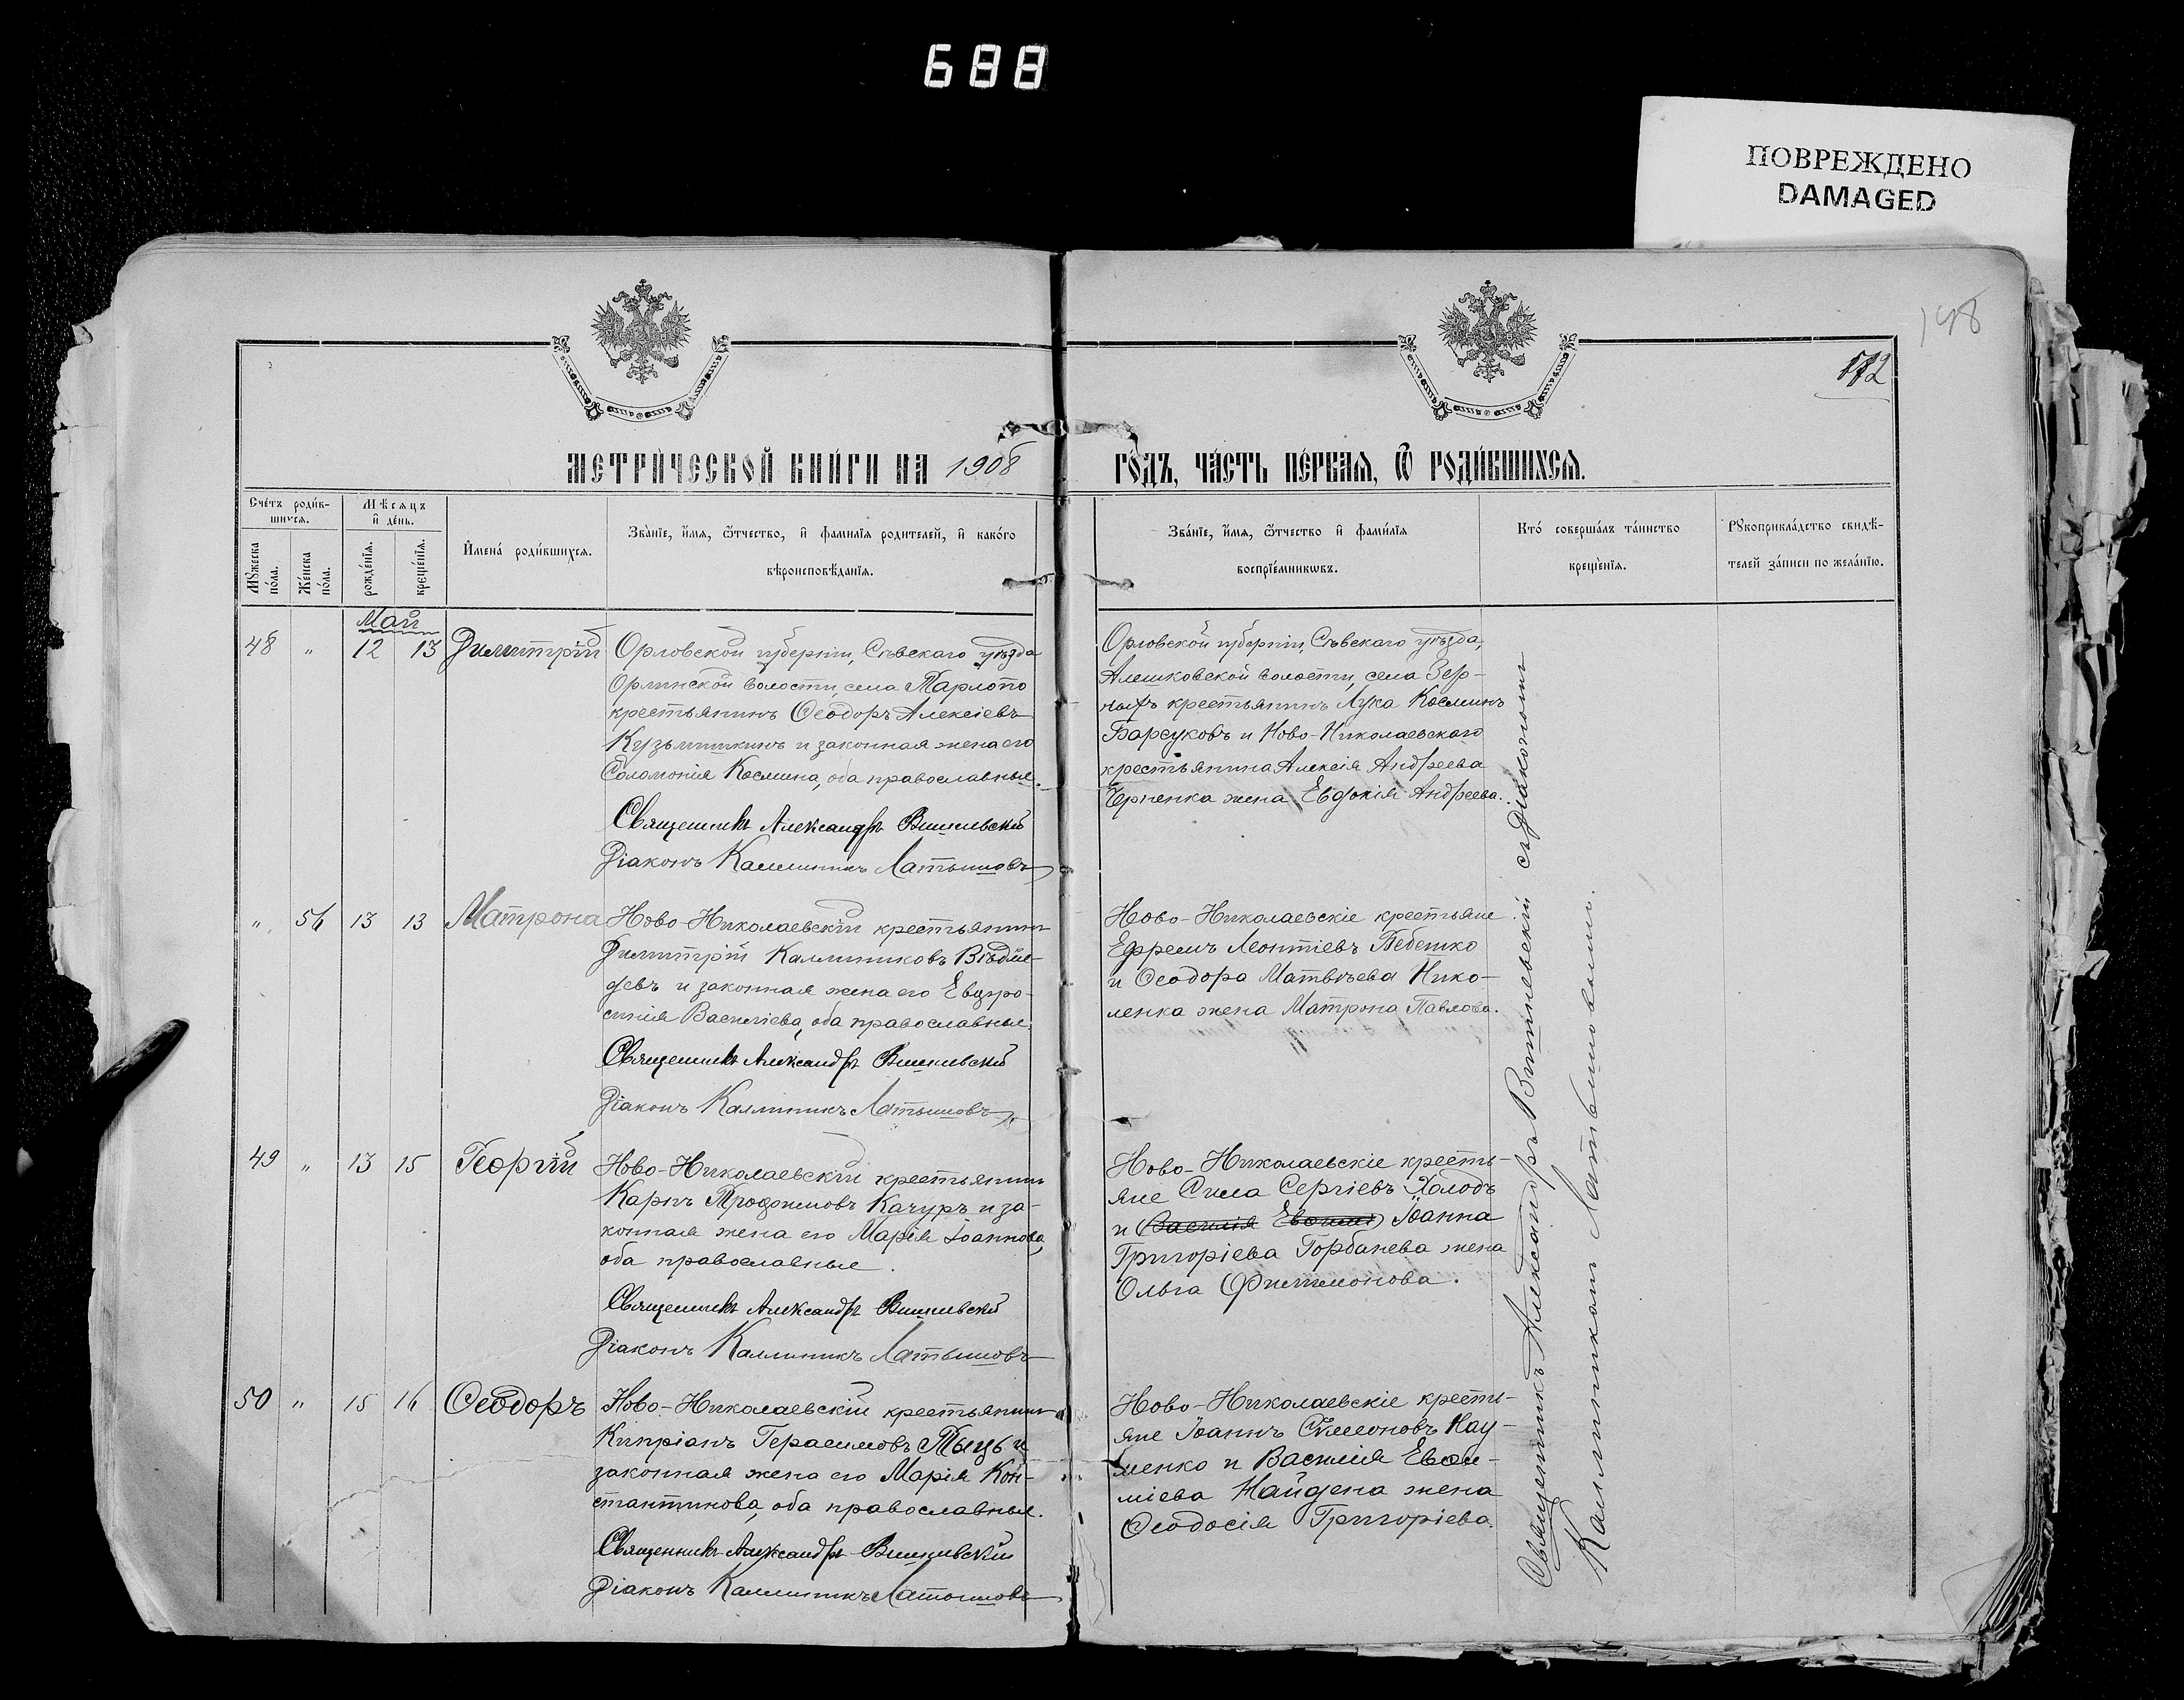 688
ПОВРЕЖДЕНО
DAMAGED
198
МЕТРИЧЕСКОЙ КНИГИ НА 1908 ГОДЪ, ЧАСТЬ ПЕРВАЯ, Ѿ РОДИВШИХСЯ.
Счетъ родившихся.
Мужеска пола.
Женска пола.
Мѣсяцъ и день.
рожденія.
крещенія.
Имена родившихся.
Званіе, имя, ѿтчество, и фамилія родителей, и какого
вѣроисповѣданія.
Званіе, имя, ѿтчество и фамилія
воспріемниковъ.
Кто совершалъ таинство
крещенія.
Рукоприкладство свидѣ-
телей записи по желанію.
Май
48 " 12 13 Димитрій
Орловской губерніи, Сѣвскаго уѣзда
волости, села
крестьянинъ Ѳеодоръ Алексіевъ
Кузьмичкинъ и законная жена его
Соломонія Космина, оба православные.
Священникъ Александръ Вишневскій
Діаконъ Каллиникъ Латышовъ
Орловской губерніи, Сѣвскаго уѣзда,
Алешковской волости, села Зер-
крестьянинъ Лука Косминъ
Барсуковъ и Ново-Николаевскаго
крестьянина Алексія Андреева
Черненка жена Евдокія Андреева.
" 56 13 13 Матрона
Ново-Николаевскій крестьянинъ
Димитрій Каллиниковъ
и законная жена его Евфро-
синія Василіева, оба православные.
Священникъ Александръ Вишневскій
Діаконъ Каллиникъ Латышовъ
Ново-Николаевскіе крестьяне
Ефремъ Леонтіевъ
и Ѳеодора Матвѣева Нико-
ленка жена Матрона Павлова.
49 " 13 15 Георгій
Ново-Николаевскій крестьянинъ
Карпъ Трофимовъ Качуръ и за-
конная жена его Марія Іоаннова,
оба православные.
Священникъ Александръ Вишневскій
Діаконъ Каллиникъ Латышовъ
Ново-Николаевскіе кресть-
яне Сила Сергіевъ Холодъ
и Василія Іоанна
Григоріева Горбанева жена
Ольга Филимонова.
50 " 15 16 Ѳеодоръ
Ново-Николаевскій крестьянинъ
Кипріанъ Герасимовъ и
законная жена его Марія Кон-
стантинова, оба православные.
Священникъ Александръ Вишневскій
Діаконъ Каллиникъ Латышовъ
Ново-Николаевскіе кресть-
яне Іоаннъ Сѵмеоновъ Нау-
менко и Василія Евѳи-
міева Найдена жена
Ѳеодосія Григоріева.
Священникъ Александръ Вишневскій съ діакономъ
Каллиникомъ Латышовымъ.